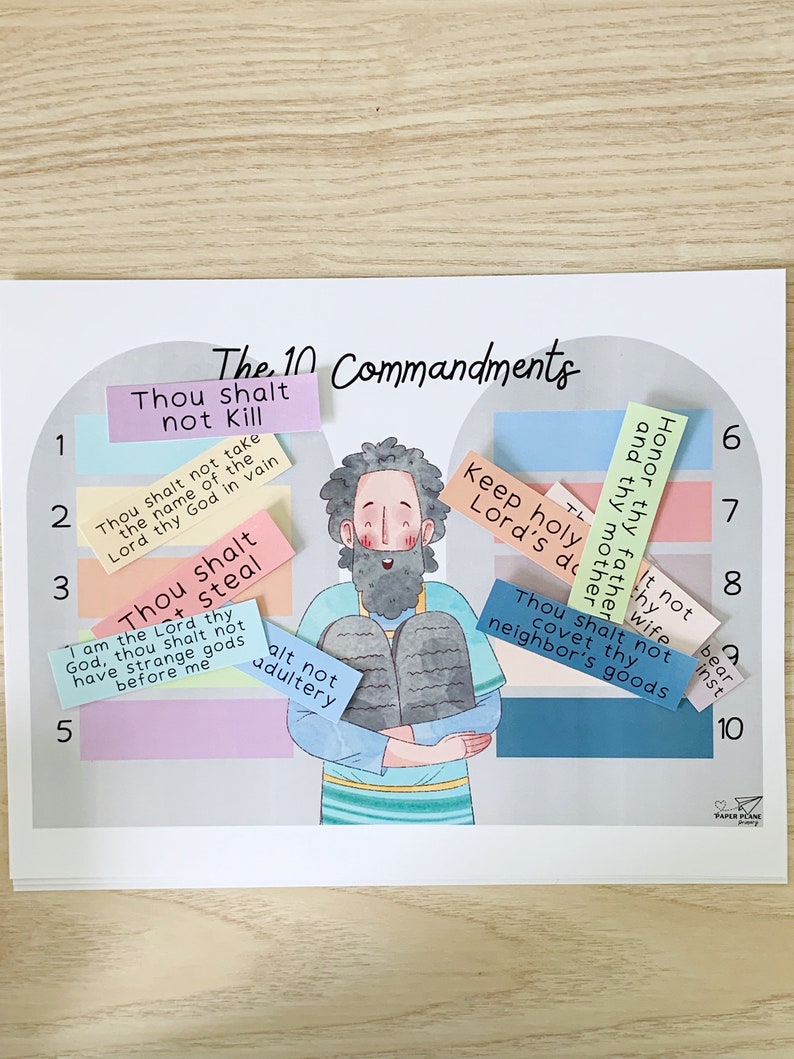 The 10 Commandments
Thou shalt
not Kill
1
Thou shalt not take
the name of the
Lord thy God in vain
2
3
Thou shalt
steal
I am the Lord thy
God, thou shalt not
have strange gods
before me
not
adultery
5
6
Honor thy father
and thy mother
Keep holy
Lord's
7
not
thy
wife
8
Thou shalt not
covet thy
neighbor's goods
bear
9
10
PAPER PLANE
Primary